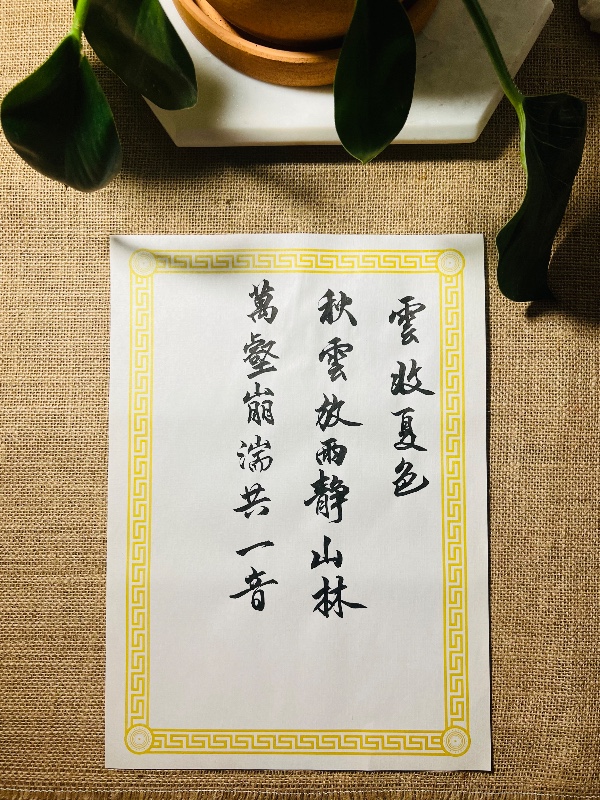 雲收夏色
秋雲放雨靜山林
萬壑崩湍共一音